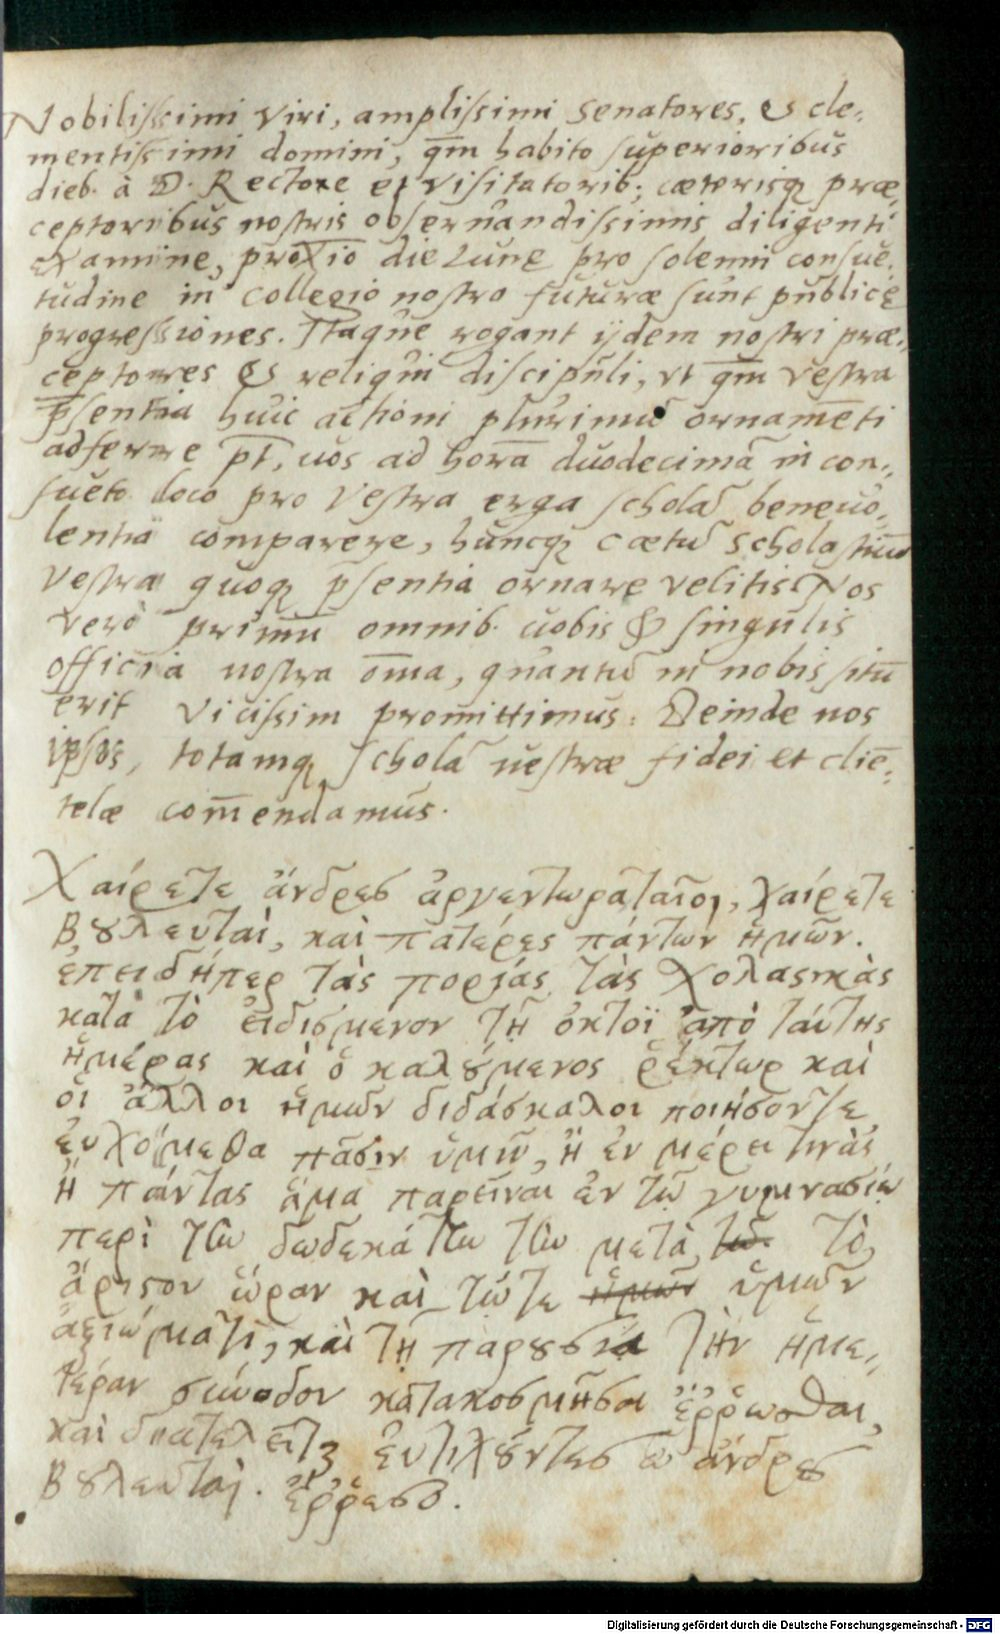 Nobilissimi viri, amplissimi Senatores, & cle-
mentissimi domini, qm̄ habito superioribus
dieb. à D. Rectore et visitatorib; cæterisq præ-
ceptoribus nostris obseruandissimis diligenti
examine, proxīo die Lunę pro solemni consue-
tudine in collegio nostro futuræ sunt publicę
progressiones. Itaque rogant ijdem nostri præ-
ceptores & reliqui discipuli, vt qm̄ vestra
p̄sentia huic actioni plurimū ornamēti
adferre pt̄, uos ad horā duodecimā in con-
sueto loco pro vestra erga scholā beneuo-
lentia comparere, huncq cœtū scholasticū
vestra quoq p̄sentia ornare velitis. Nos
vero primū omnib. uobis & singulis
officia nostra om̄a, quantū in nobis sitū
erit vicissim promittimus: Deinde nos
ipsos, totamq scholā uestræ fidei et cliē-
telæ com̄endamus.
Χαίρετε ἄνδρες ἀργεντωραταῖοι, χαίρετε
βȣλευταὶ, καὶ πατέρες πάντων ἡμῶν.
ἐπειδήπερ τὰς πορείας τὰς χολαςικὰς
κατὰ τὸ εἰδισμένον τῇ ὀκτοῒ ἀπὸ ταύτης
ἡμέρας καὶ ὁ καλȣμενος ῥέκτωρ καὶ
οἱ ἄλλοι ἡμῶν διδάσκαλοι ποιήσοντε
ἐυχόμεθα πᾶσιν ὑμῖν, ἢ ἐν μέρει τινὰς
ἢ πάντας ἅμα παρεῖναι ἐν τῷ γυμνασίῳ
περὶ τὴν δωδεκάτην τὴν μετὰ τῶ. τὸ
ἄριςον ὥραν καὶ τῷ τε ἡμῶν ὑμῶν
ἀξιώματι, καὶ τῇ παρȣσίᾳ τὴν ἡμε-
τέραν σύνοδον κατακοσμῆσαι ἔῤῥωσθαι,
καὶ διατελεῖτε ἐυτιχȣντες ὦ ἄνδρες
βȣλευταὶ. ἔῤῥεσο.
Digitalisierung gefördert durch die Deutsche Forschungsgemeinschaft - DFG